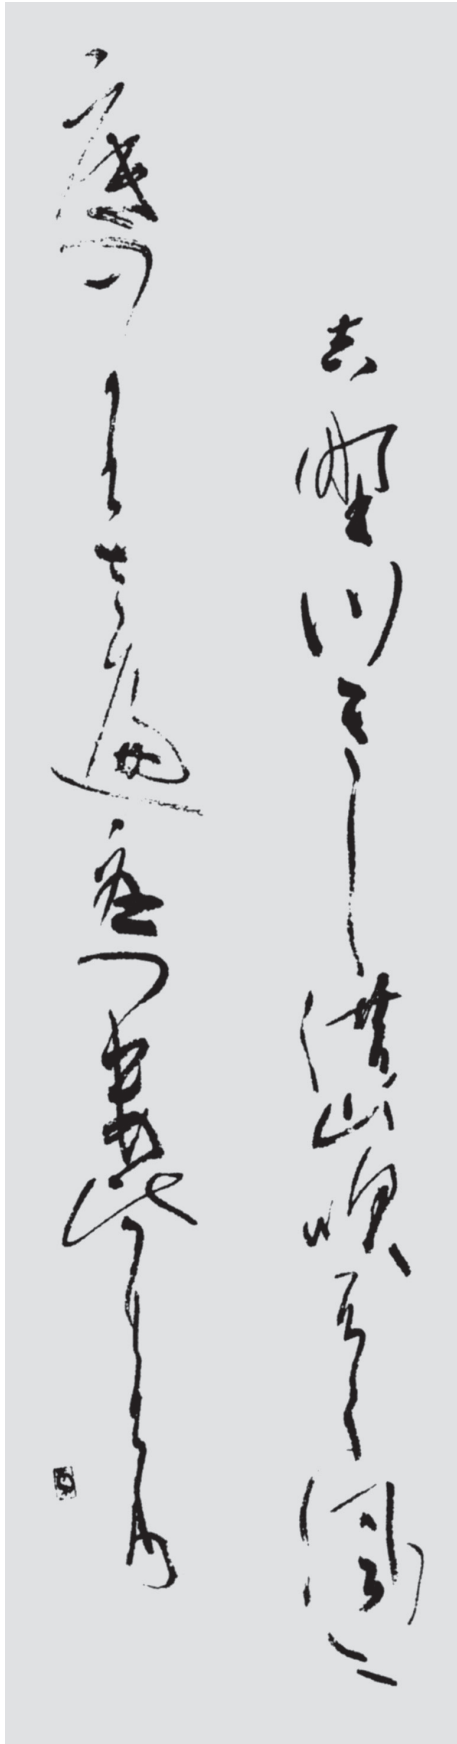 吉野川きしの山吹ふく風に
底のかけさへうつろひにけり